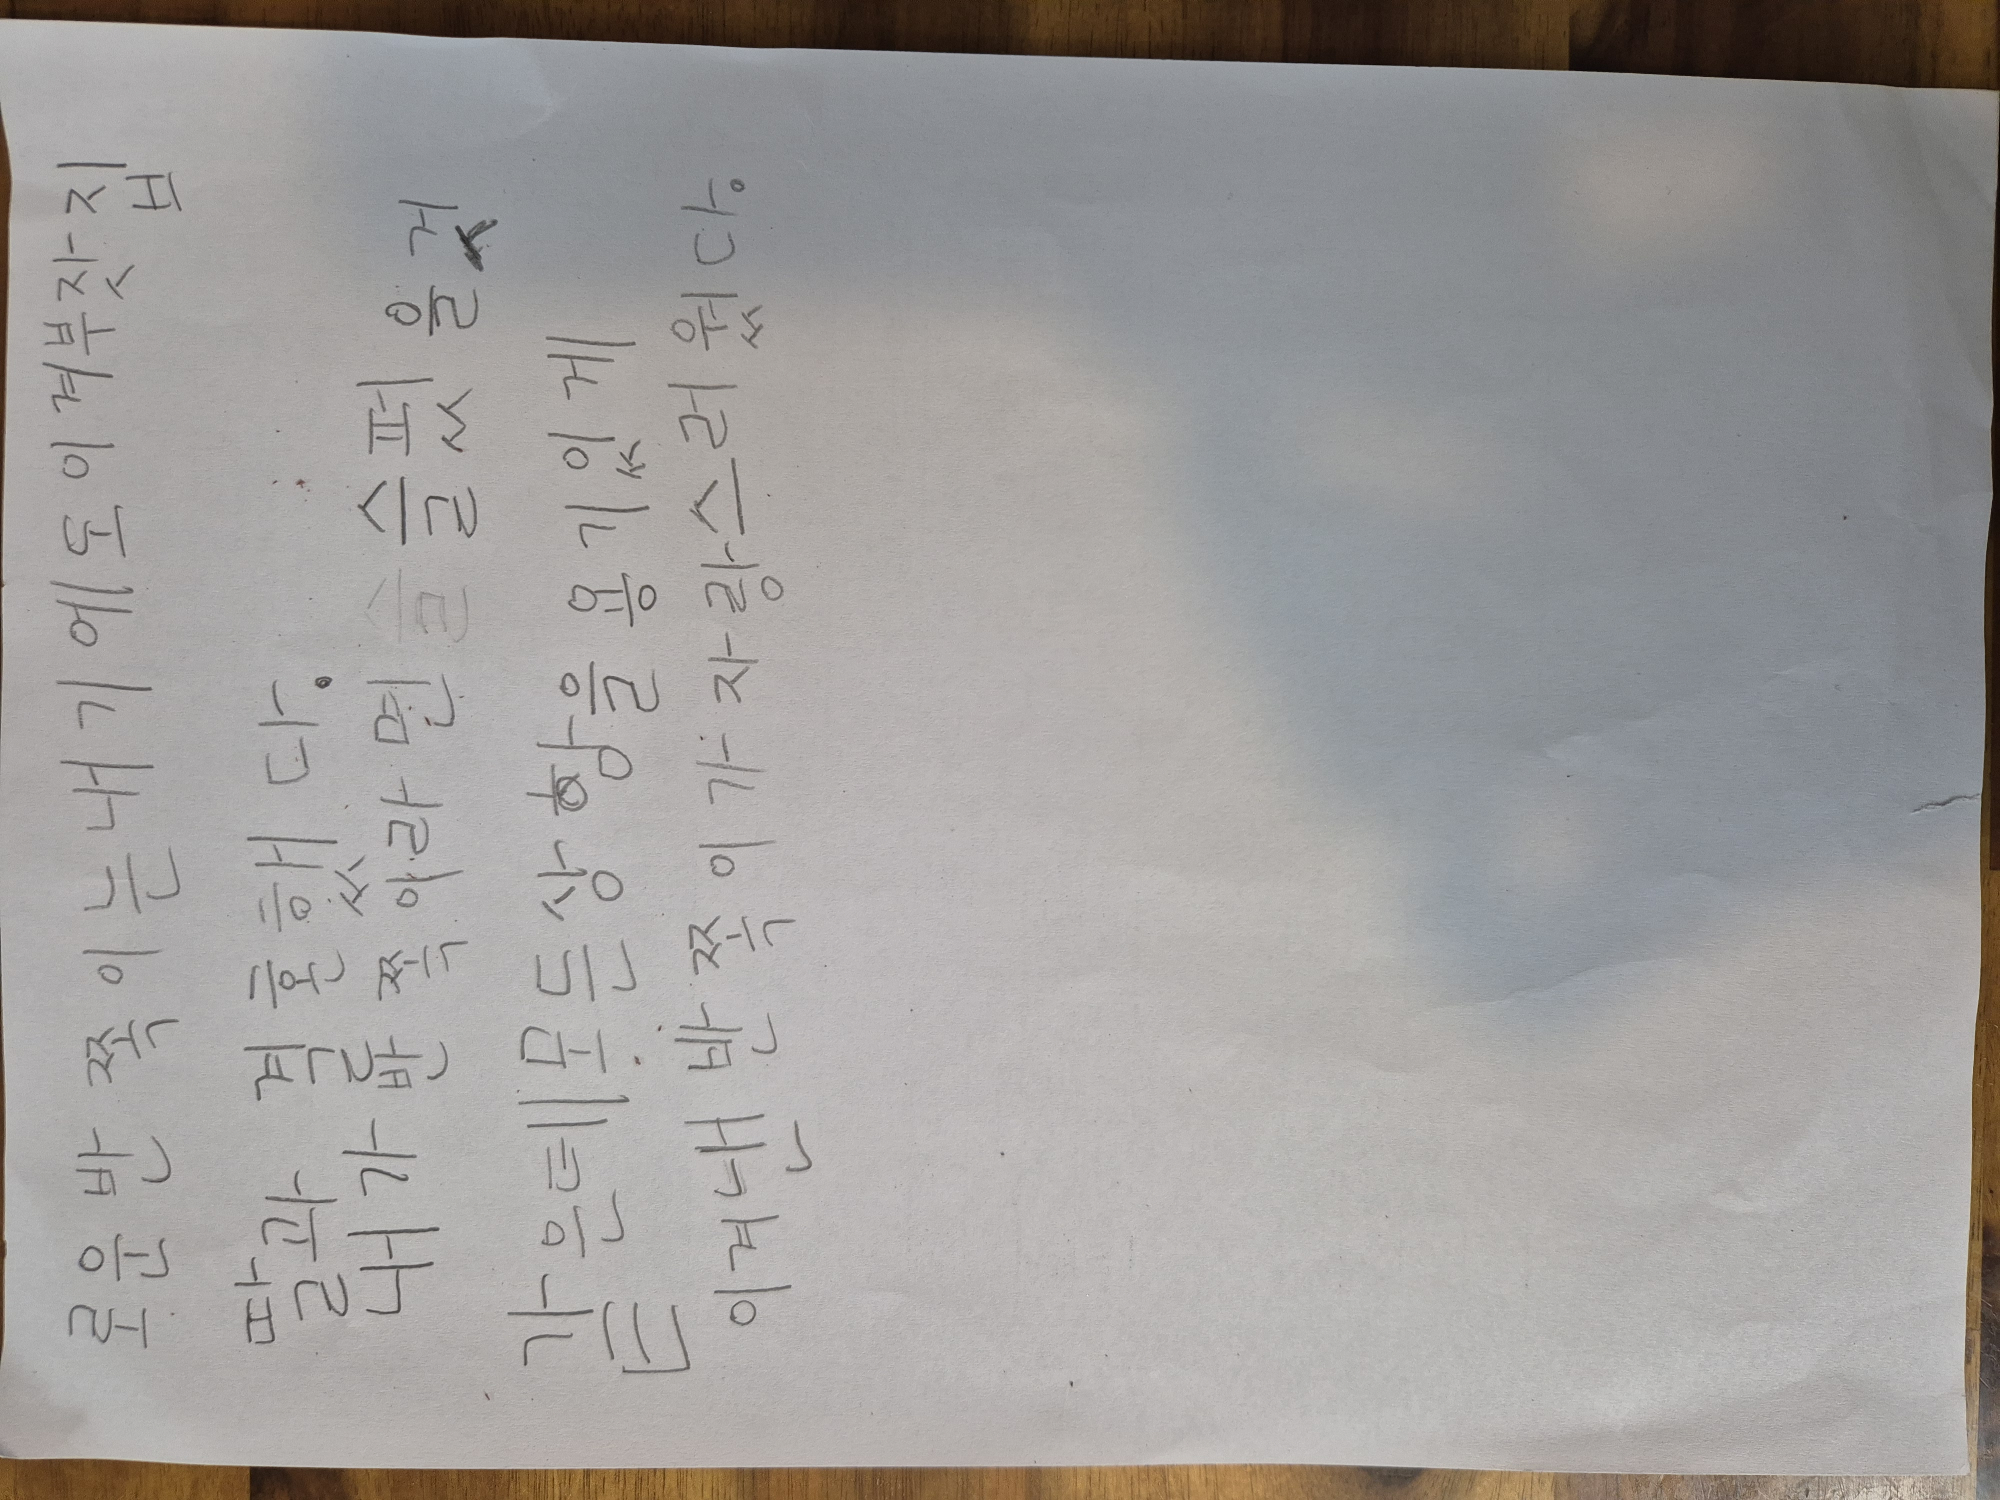 로운 반쪽이는 내기에도 이겨 부잣집
딸과 결혼했다.
내가 반쪽이라면 슬펐을 것
같은데 모든 상항을 용기있게
이겨낸 반쪽이가 자랑스러웠다.